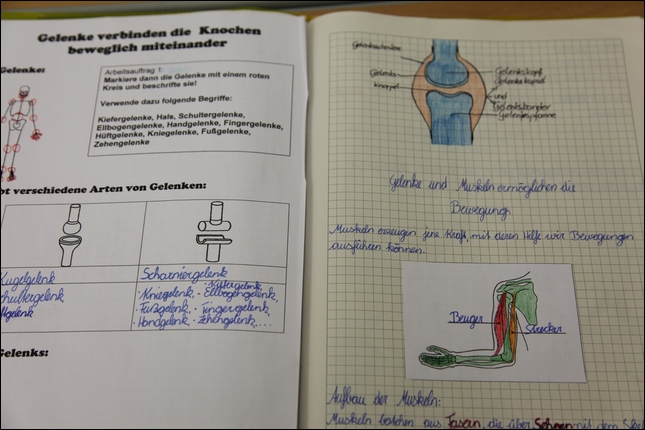 Gelenke verbinden die Knochen
beweglich miteinander
Gelenke:
Arbeitsauftrag 1:
Markiere dann die Gelenke mit einem roten
Kreis und beschrifte sie!
Verwende dazu folgende Begriffe:
Kiefergelenke, Hals, Schultergelenke,
Ellbogengelenke, Handgelenke, Fingergelenke,
Hüftgelenke, Kniegelenke, Fußgelenke,
Zehengelenke
bt verschiedene Arten von Gelenken:
Kugelgelenk
Schultergelenk
Scharniergelenk
Kiefergelenk
·Kniegelenk, · Ellbogengelenk,
·Fußgelenk, · Fingergelenk,
·Handgelenk, · Zehengelenk,...
Gelenks:
Gelenk-
knorpel
Gelenkkopf
Gelenkkapsel
und
Gelenksbänder
Gelenkspfanne
Gelenke und Muskeln ermöglichen die
Bewegung.
Muskeln erzeugen jene Kraft, mit deren Hilfe wir Bewegungen
ausführen können.
Beuger
Strecker
Aufbau der Muskeln:
Muskeln bestehen aus Fasern, die über Sehnen mit dem